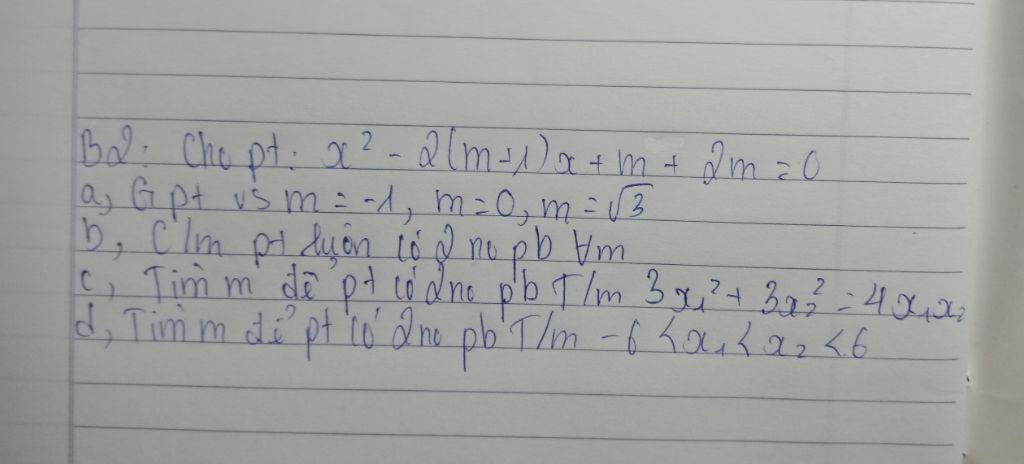 B2: Cho pt: x² - 2(m+1)x + m + 2m = 0
a, G pt vs m = -1, m = 0, m = √3
b, C/m pt luôn có 2 no pb ∀m
c, Tìm m để pt có 2no pb T/m 3x₁² + 3x₂² = 4x₁x₂
d, Tìm m để pt có 2no pb T/m -6 < x₁ < x₂ < 6